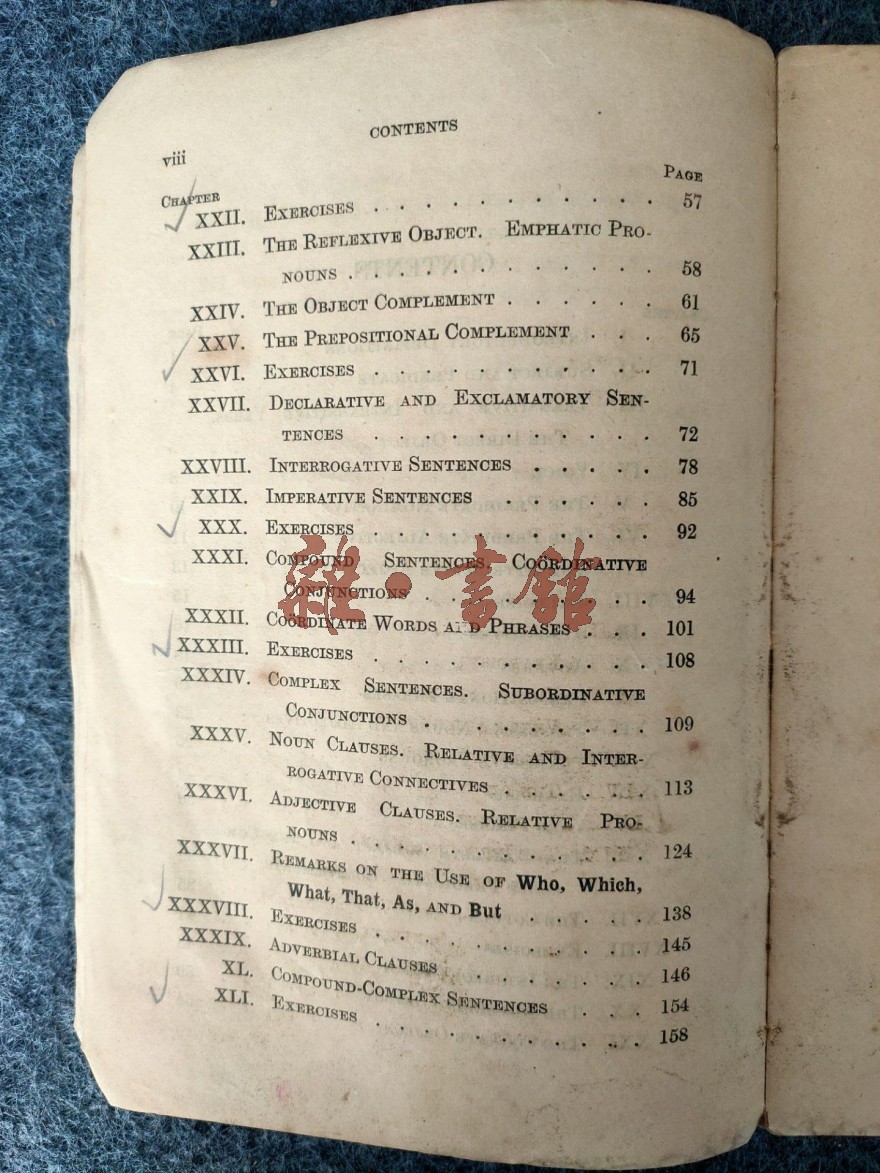 viii
CONTENTS
CHAPTER PAGE
XXII. EXERCISES . . . . . . . . . . . 57
XXIII. THE REFLEXIVE OBJECT. EMPHATIC PRO-
NOUNS . . . . . . . . . . . . 58
XXIV. THE OBJECT COMPLEMENT . . . . . . 61
XXV. THE PREPOSITIONAL COMPLEMENT . . . 65
XXVI. EXERCISES . . . . . . . . . . . 71
XXVII. DECLARATIVE AND EXCLAMATORY SEN-
TENCES . . . . . . . . . . . 72
XXVIII. INTERROGATIVE SENTENCES . . . . . 78
XXIX. IMPERATIVE SENTENCES . . . . . . 85
XXX. EXERCISES . . . . . . . . . . . 92
XXXI. COMPOUND SENTENCES. COÖRDINATIVE
CONJUNCTIONS . . . . . . . . . 94
雜·書館
XXXII. COÖRDINATE WORDS AND PHRASES . . . 101
XXXIII. EXERCISES . . . . . . . . . . . 108
XXXIV. COMPLEX SENTENCES. SUBORDINATIVE
CONJUNCTIONS . . . . . . . . . 109
XXXV. NOUN CLAUSES. RELATIVE AND INTER-
ROGATIVE CONNECTIVES . . . . . . 113
XXXVI. ADJECTIVE CLAUSES. RELATIVE PRO-
NOUNS . . . . . . . . . . . . 124
XXXVII. REMARKS ON THE USE OF Who, Which,
What, That, As, AND But . . . . . 138
XXXVIII. EXERCISES . . . . . . . . . . . 145
XXXIX. ADVERBIAL CLAUSES . . . . . . . 146
XL. COMPOUND-COMPLEX SENTENCES . . . 154
XLI. EXERCISES . . . . . . . . . . . 158